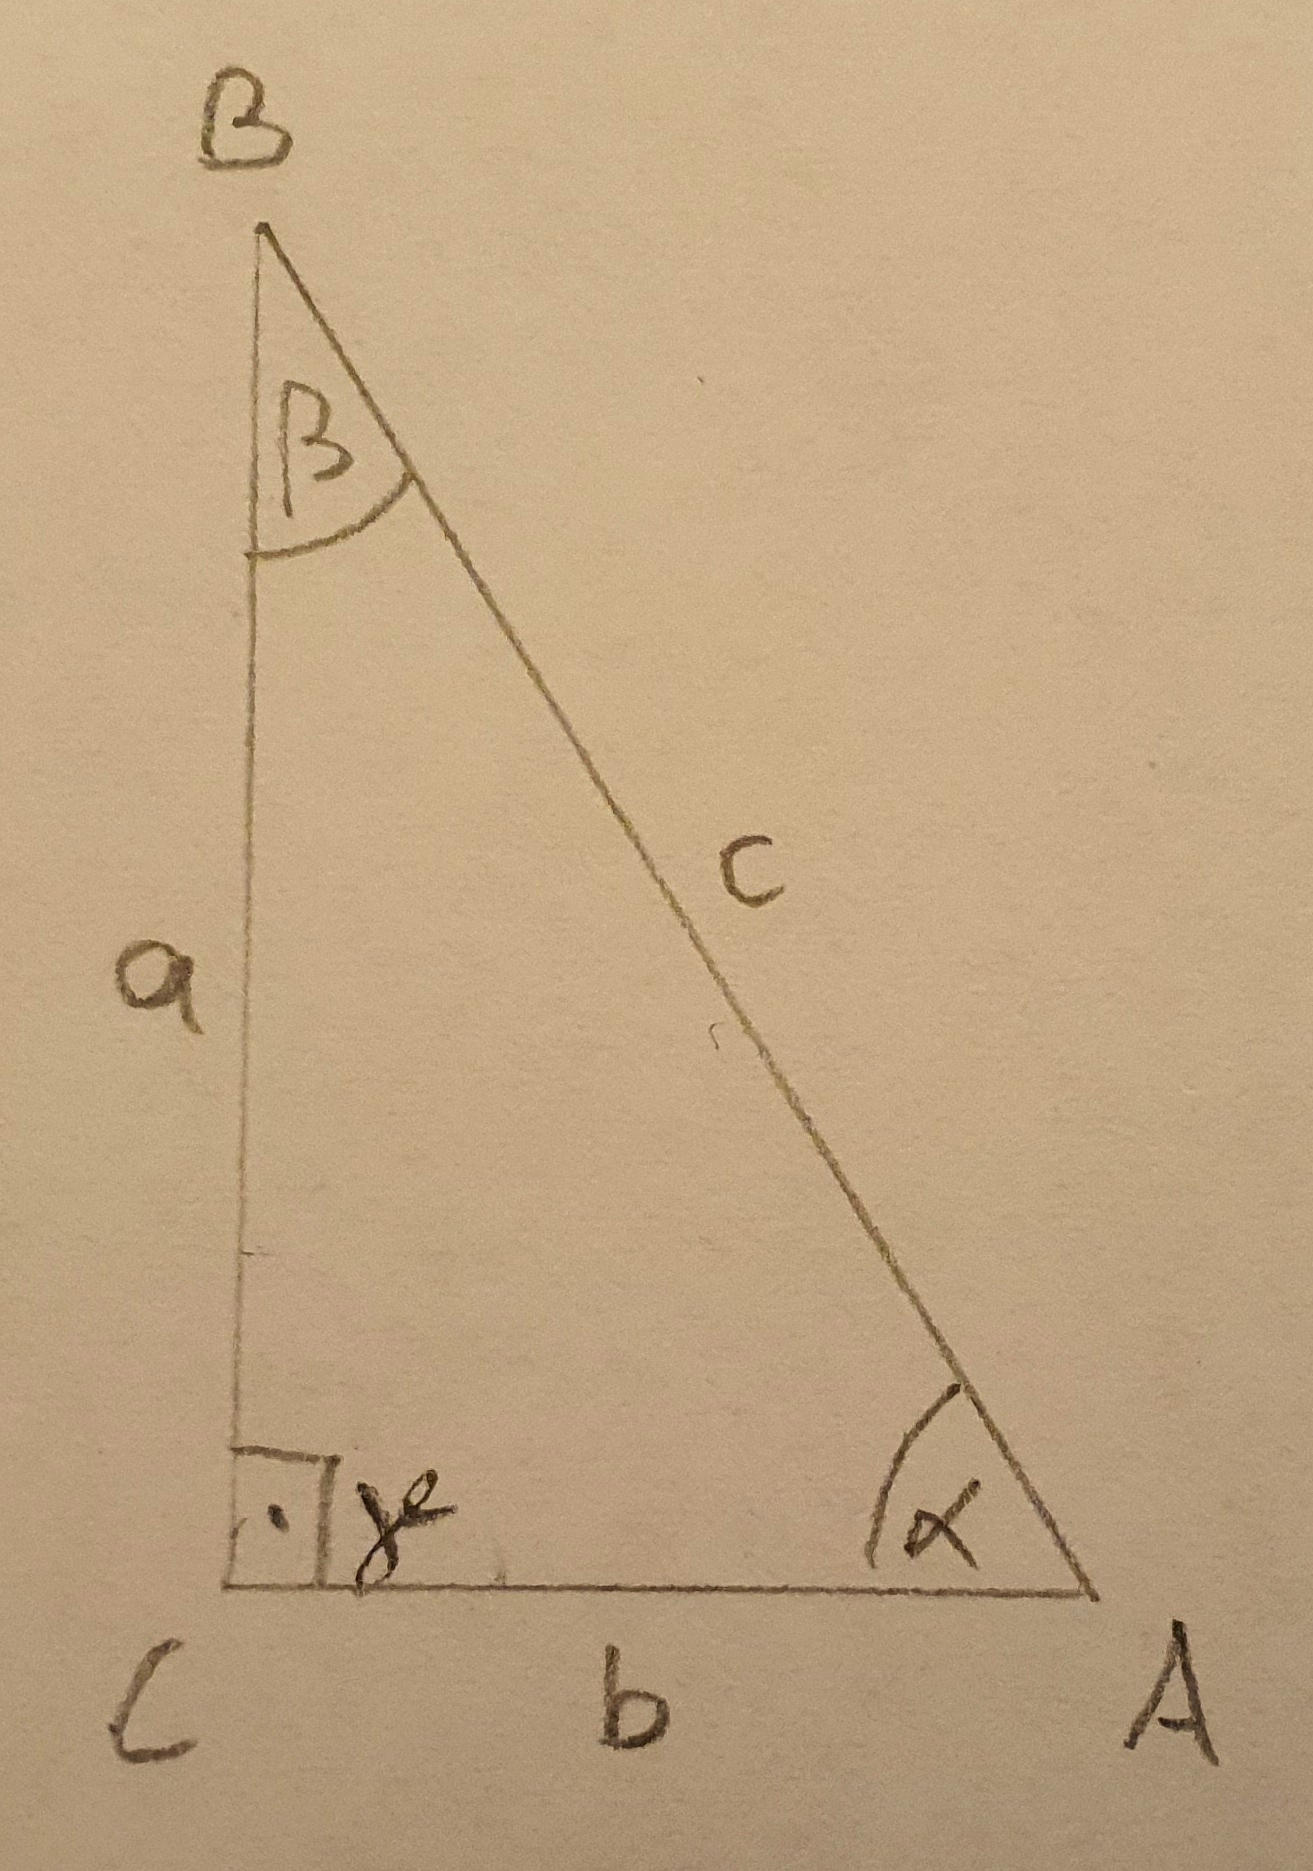 B
β
c
a
γ
α
C
b
A